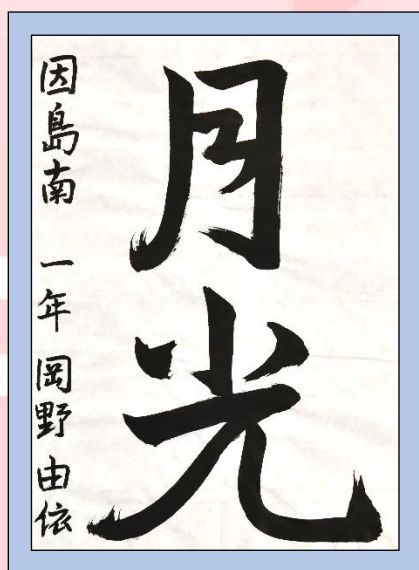 月光
因島南 一年 岡野 由依